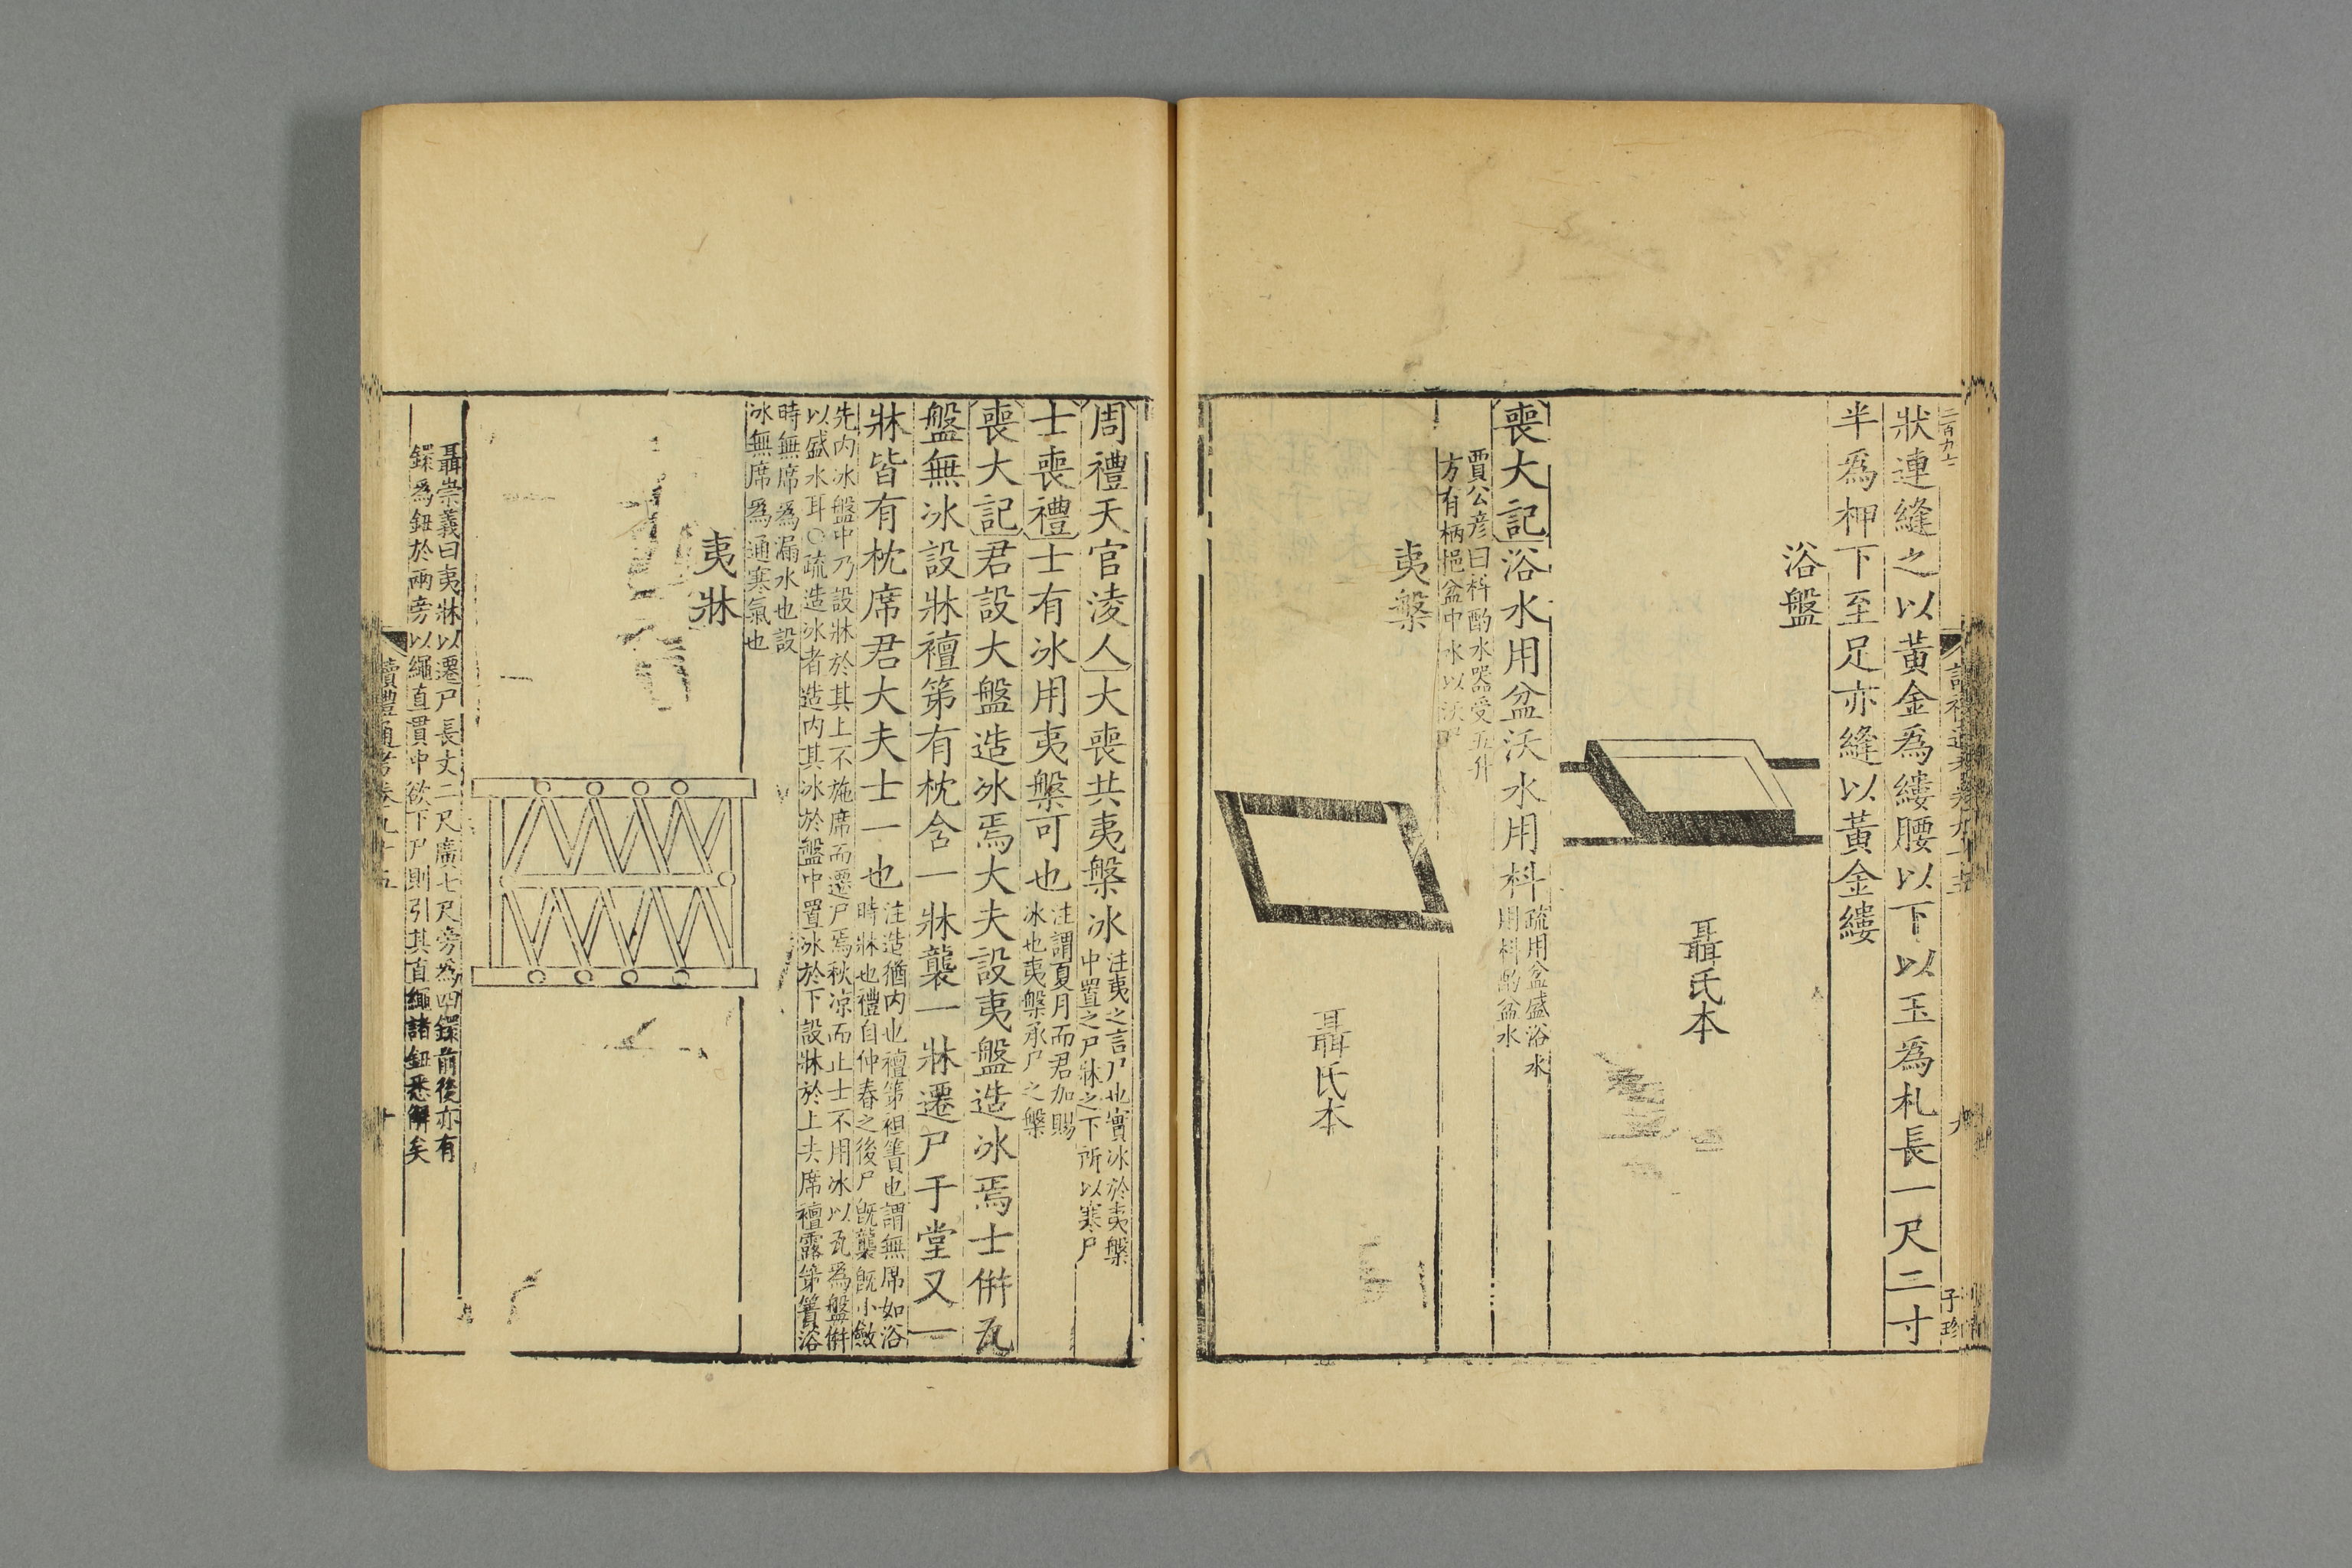 二百九十
狀連縫之以黃金爲縷腰以下以玉爲札長一尺二寸
半爲柙下至足亦縫以黃金縷
浴盤
聶氏本
喪大記浴水用盆沃水用枓
疏用盆盛浴水
用枓酌盆水
賈公彦曰枓酌水器受五升
方有柄挹盆中水以沃尸
夷槃
聶氏本
九
子珍
周禮天官淩人大喪共夷槃冰
注夷之言尸也實冰於夷槃
中置之尸牀之下所以寒尸
士喪禮士有冰用夷槃可也
注謂夏月而君加賜
冰也夷槃承尸之槃
喪大記君設大盤造冰焉大夫設夷盤造冰焉士併瓦
盤無冰設牀襢第有枕含一牀襲一牀遷尸于堂又一
牀皆有枕席君大夫士一也
注造猶内也襢第袒簀也謂無席如浴
時牀也禮自仲春之後尸既襲既小斂
先内冰盤中乃設牀於其上不施席而遷尸焉秋凉而止士不用冰以瓦爲盤併
以盛水耳○疏造冰者造内其冰於盤中置冰於下設牀於上去席襢露第簀浴
時無席爲漏水也設
冰無席爲通寒氣也
夷牀
聶崇義曰夷牀以遷尸長丈二尺廣七尺旁爲四鐶前後亦有
鐶爲鈕於兩旁以繩直貫中欲下尸則引其直繩諸鈕悉解矣
讀禮通考卷九十五
十